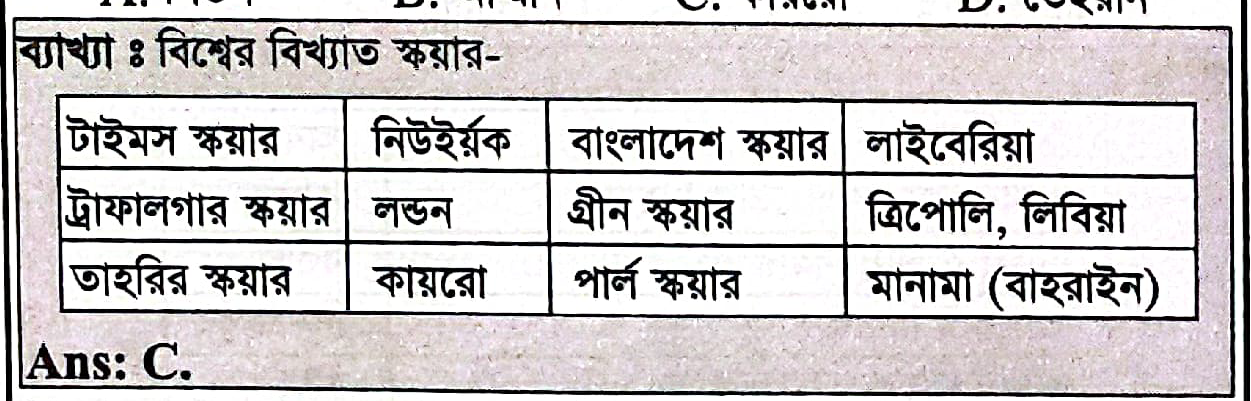 ব্যাখ্যা ঃ বিশ্বের বিখ্যাত স্কয়ার-
টাইমস স্কয়ার নিউইর্য়ক বাংলাদেশ স্কয়ার লাইবেরিয়া
ট্রাফালগার স্কয়ার লন্ডন গ্রীন স্কয়ার ত্রিপোলি, লিবিয়া
তাহরির স্কয়ার কায়রো পার্ল স্কয়ার মানামা (বাহরাইন)
Ans: C.